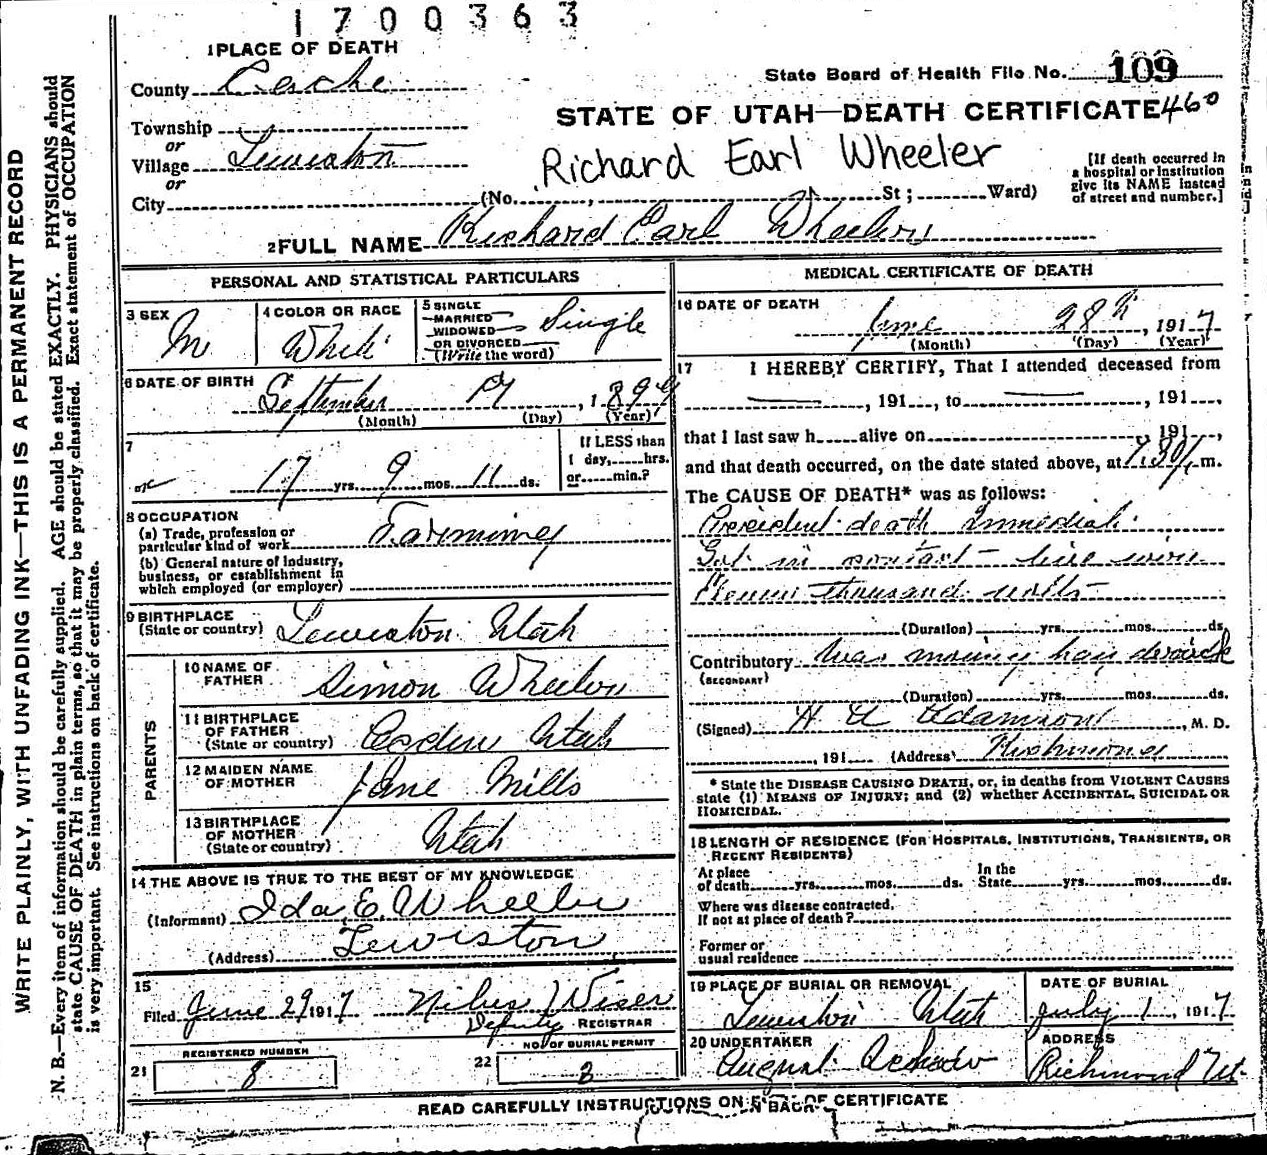 1700363
1 PLACE OF DEATH
County Cache
State Board of Health File No. 109
STATE OF UTAH—DEATH CERTIFICATE 460
Township
or
Village Lewiston
or
City
Richard Earl Wheeler
(No. , St; Ward)
[If death occurred in
a hospital or institution
give its NAME instead
of street and number.]
2 FULL NAME Richard Earl Wheeler
PERSONAL AND STATISTICAL PARTICULARS
3 SEX
M
4 COLOR OR RACE
White
5 SINGLE
MARRIED
WIDOWED
OR DIVORCED
(Write the word)
Single
6 DATE OF BIRTH
September 17, 1899
(Month) (Day) (Year)
7
17 yrs. 9 mos. 11 ds.
If LESS than
1 day, hrs.
or min.?
8 OCCUPATION
(a) Trade, profession or
particular kind of work Farming
(b) General nature of industry,
business, or establishment in
which employed (or employer)
9 BIRTHPLACE
(State or country) Lewiston Utah
PARENTS
10 NAME OF
FATHER Simon Wheeler
11 BIRTHPLACE
OF FATHER
(State or country) Utah
12 MAIDEN NAME
OF MOTHER Jane Mills
13 BIRTHPLACE
OF MOTHER
(State or country) Utah
14 THE ABOVE IS TRUE TO THE BEST OF MY KNOWLEDGE
(Informant) Ida E. Wheeler
(Address) Lewiston
15
Filed June 29 1917 Wiser
Deputy REGISTRAR
21 REGISTERED NUMBER
8
22 NO. OF BURIAL PERMIT
3
MEDICAL CERTIFICATE OF DEATH
16 DATE OF DEATH
June 28th, 1917
(Month) (Day) (Year)
17 I HEREBY CERTIFY, That I attended deceased from
, 191 , to , 191 ,
that I last saw h alive on , 191 ,
and that death occurred, on the date stated above, at 7.30 m.
The CAUSE OF DEATH* was as follows:
Accident death Immediate
Got in contact live wire
Eleven thousand volts
(Duration) yrs. mos. ds.
Contributory was moving hay derrick
(SECONDARY)
(Duration) yrs. mos. ds.
(Signed) Adamson, M. D.
, 191 (Address) Richmond
* State the DISEASE CAUSING DEATH, or, in deaths from VIOLENT CAUSES
state (1) MEANS OF INJURY; and (2) whether ACCIDENTAL, SUICIDAL OR
HOMICIDAL.
18 LENGTH OF RESIDENCE (FOR HOSPITALS, INSTITUTIONS, TRANSIENTS, OR
RECENT RESIDENTS)
At place
of death yrs. mos. ds.
In the
State yrs. mos. ds.
Where was disease contracted.
If not at place of death?
Former or
usual residence
19 PLACE OF BURIAL OR REMOVAL
Lewiston Utah
DATE OF BURIAL
July 1, 1917
20 UNDERTAKER
August
ADDRESS
Richmond Ut.
READ CAREFULLY INSTRUCTIONS ON BACK OF CERTIFICATE
WRITE PLAINLY, WITH UNFADING INK—THIS IS A PERMANENT RECORD
N. B.—Every item of information should be carefully supplied. AGE should be stated EXACTLY. PHYSICIANS should
state CAUSE OF DEATH in plain terms, so that it may be properly classified. Exact statement of OCCUPATION
is very important. See instructions on back of certificate.